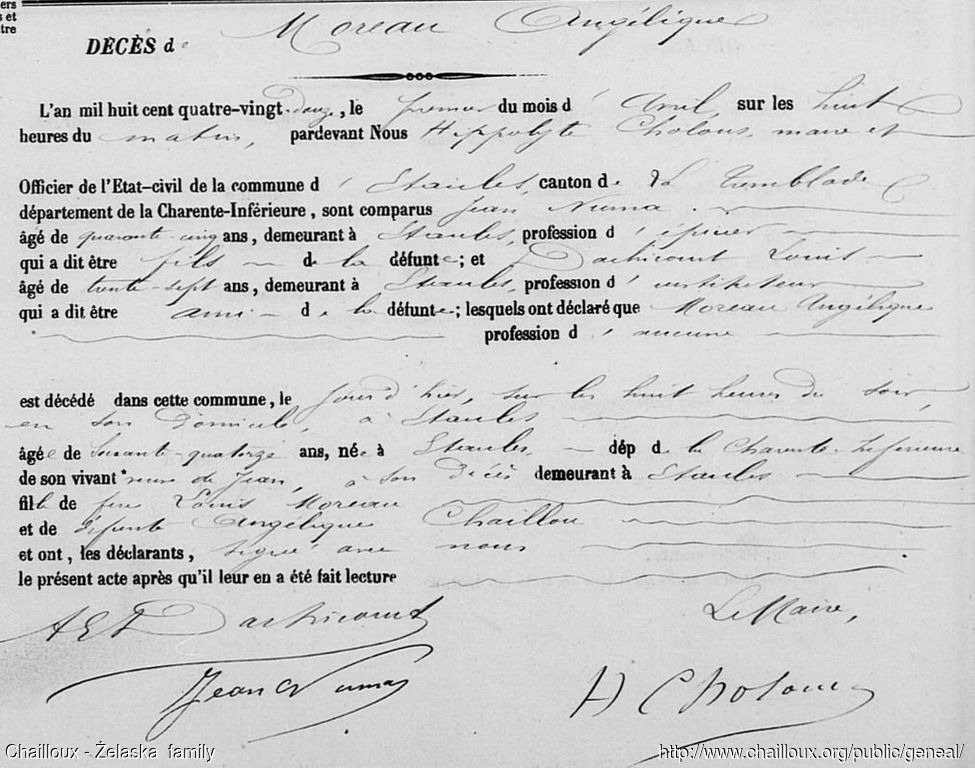 ers
s et
tre
DÉCÈS de Moreau Angélique
L'an mil huit cent quatre-vingt-douze, le premier du mois d'Avril, sur les huit
heures du matin, pardevant Nous Hippolyte Cholous, maire et
Officier de l'Etat-civil de la commune d'Etaules, canton de La Tremblade
département de la Charente-Inférieure, sont comparus Jean Numa
âgé de quarante-cinq ans, demeurant à Etaules, profession d'épicier
qui a dit être fils de la défunte; et Dachicourt Louis
âgé de trente-sept ans, demeurant à Etaules, profession d'instituteur
qui a dit être ami de la défunte; lesquels ont déclaré que Moreau Angélique
profession d'aucune
est décédé dans cette commune, le jour d'hier, sur les huit heures du soir,
en son domicile, à Etaules
âgée de soixante-quatorze ans, née à Etaules, dép de la Charente-Inférieure
de son vivant veuve de Jean, à son décès demeurant à Etaules
fille de feu Louis Moreau
et de défunte Angélique Chaillou
et ont, les déclarants, signé avec nous
le présent acte après qu'il leur en a été fait lecture
Le Maire,
Dachicourt
Jean Numa
H Cholous
Chailloux - Żelaska family
http://www.chailloux.org/public/geneal/